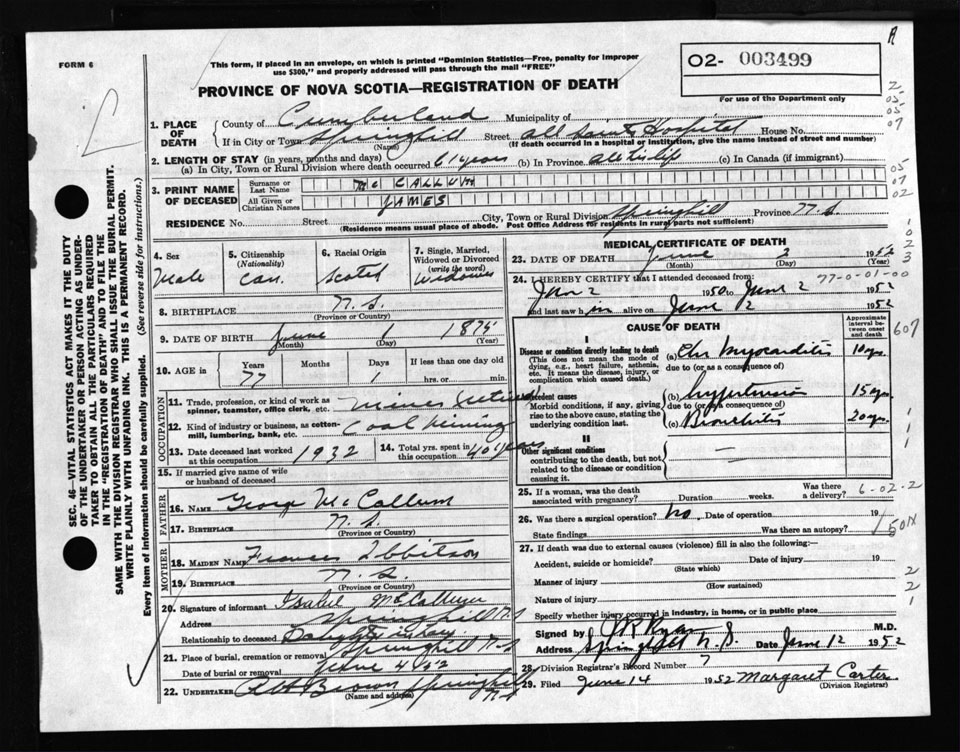 R
FORM 6
This form, if placed in an envelope, on which is printed "Dominion Statistics—Free, penalty for improper
use $300," and properly addressed will pass through the mail "FREE"
02- 003499
For use of the Department only
PROVINCE OF NOVA SCOTIA—REGISTRATION OF DEATH
1. PLACE OF DEATH
County of Cumberland Municipality of
If in City or Town Springhill Street All Saints Hospital House No.
(Name) (If death occurred in a hospital or institution, give the name instead of street and number)
2. LENGTH OF STAY (in years, months and days)
(a) In City, Town or Rural Division where death occurred 61 years (b) In Province All his life (c) In Canada (if immigrant)
3. PRINT NAME OF DECEASED
Surname or Last Name Mc CALLUM
All Given or Christian Names JAMES
RESIDENCE No. Street City, Town or Rural Division Springhill Province N.S.
(Residence means usual place of abode. Post Office Address for residents in rural parts not sufficient)
4. Sex Male
5. Citizenship (Nationality) Can.
6. Racial Origin Scotch
7. Single, Married, Widowed or Divorced (write the word) Widower
8. BIRTHPLACE N.S.
(Province or Country)
9. DATE OF BIRTH June 1 1875
(Month) (Day) (Year)
10. AGE in Years 77 Months Days 1 If less than one day old hrs. or min.
OCCUPATION
11. Trade, profession, or kind of work as spinner, teamster, office clerk, etc. Miner
12. Kind of industry or business, as cotton-mill, lumbering, bank, etc. Coal Mining
13. Date deceased last worked at this occupation 1932
14. Total yrs. spent in this occupation 40 years
15. If married give name of wife or husband of deceased
FATHER
16. NAME George McCallum
17. BIRTHPLACE N.S.
(Province or Country)
MOTHER
18. MAIDEN NAME Frances Ibbitson
19. BIRTHPLACE N.S.
(Province or Country)
20. Signature of informant Isabel McCallum
Address Springhill N.S.
Relationship to deceased
21. Place of burial, cremation or removal Springhill N.S.
Date of burial or removal June 4 52
22. UNDERTAKER Brown Springhill N.S.
(Name and address)
MEDICAL CERTIFICATE OF DEATH
23. DATE OF DEATH June 2 1952
(Month) (Day) (Year)
77-0-01-00
24. I HEREBY CERTIFY that I attended deceased from:
Jan 2 1950 to June 2 1952
and last saw him alive on June 2 1952
CAUSE OF DEATH
Approximate interval between onset and death
I
Disease or condition directly leading to death (a) Chr Myocarditis 10 yrs.
(This does not mean the mode of dying, e.g., heart failure, asthenia, etc. It means the disease, injury, or complication which caused death.)
due to (or as a consequence of)
Antecedent causes (b) Hypertension 15 yrs
Morbid conditions, if any, giving rise to the above cause, stating the underlying condition last.
due to (or as a consequence of)
(c) Bronchitis 20 yrs.
II
Other significant conditions
contributing to the death, but not related to the disease or condition causing it.
607
25. If a woman, was the death associated with pregnancy? Duration weeks. Was there a delivery?
6-02-2
26. Was there a surgical operation? No. Date of operation 19
State findings Was there an autopsy?
501X
27. If death was due to external causes (violence) fill in also the following:—
Accident, suicide or homicide? Date of injury 19
(State which)
Manner of injury
(How sustained)
Nature of injury
Specify whether injury occurred in industry, in home, or in public place
Signed by J R Ryan M.D.
Address Springhill N.S. Date June 12 1952
28. Division Registrar's Record Number 7
29. Filed June 14 1952 Margaret Carter
(Division Registrar)
SEC. 46—VITAL STATISTICS ACT MAKES IT THE DUTY
OF THE UNDERTAKER OR PERSON ACTING AS UNDER-
TAKER TO OBTAIN ALL THE PARTICULARS REQUIRED
IN THE "REGISTRATION OF DEATH" AND TO FILE THE
SAME WITH THE DIVISION REGISTRAR WHO SHALL ISSUE THE BURIAL PERMIT.
WRITE PLAINLY WITH UNFADING INK. THIS IS A PERMANENT RECORD.
Every item of information should be carefully supplied. (See reverse side for instructions.)